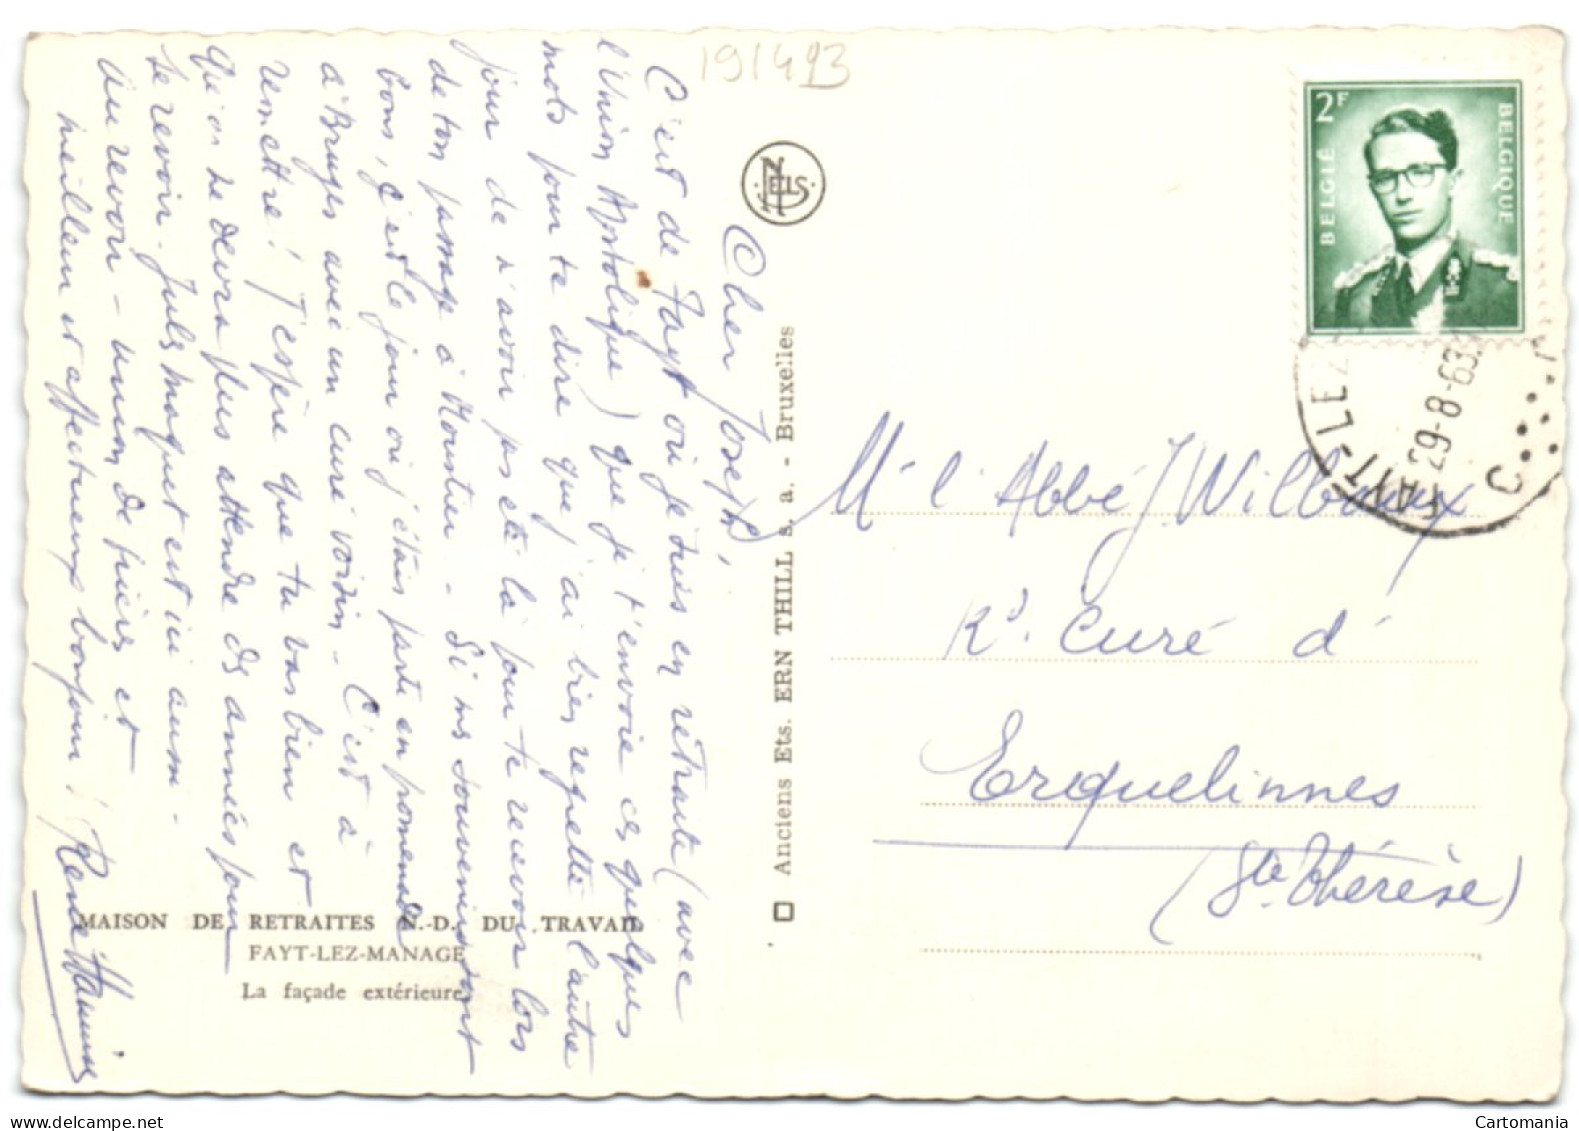 191493
Cher Joseph,
C'est de Fayt où je suis en retraite (avec
l'Union Apostolique) que je t'envoie ces quelques
mots pour te dire que j'ai bien regretté l'autre
jour de n'avoir pas été là pour te recevoir lors
de ton passage à Moustier - Si mes souvenirs sont
bons, c'est le jour où j'étais parti en promenade
à Bruges avec un curé voisin - C'est à
remettre! J'espère que tu vas bien et
qu'on ne devra plus attendre des années pour
se revoir. Jules maquet est ici aussi -
Au revoir - union de prières et
meilleur et affectueux bonjour!
René
MAISON DE RETRAITES N.-D. DU TRAVAIL
FAYT-LEZ-MANAGE
La façade extérieure
NELS
Anciens Ets. ERN THILL s. a. - Bruxelles
2F
BELGIË
BELGIQUE
FAYT-LEZ
29-8-63
C
Mr l'Abbé J. Wilbaux
Rd. Curé d'
Erquelinnes
(Ste. Thérèse)
Cartomania